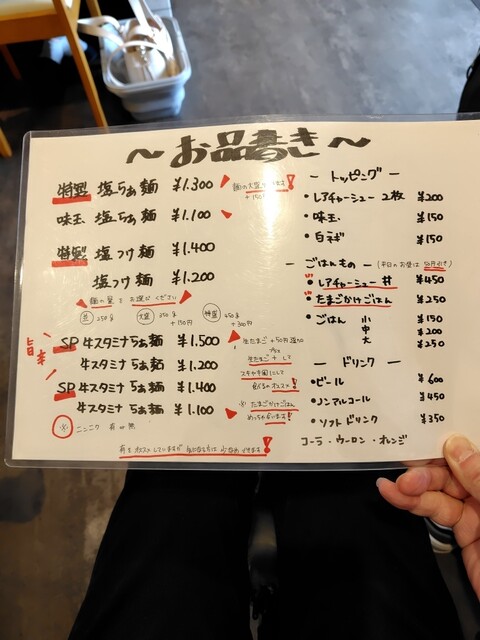 〜お品書き〜
特製 塩らぁ麺 ¥1.300
味玉 塩らぁ麺 ¥1.100
麺の大盛
+150
特製 塩つけ麺 ¥1.400
塩つけ麺 ¥1.200
麺の量をお選びください
並 250g 大盛 350g +150円 特盛 450g +300円
旨辛
SP 牛スタミナらぁ麺 ¥1.500
牛スタミナらぁ麺 ¥1.200
SP 牛スタミナらぁ麺 ¥1.400
牛スタミナらぁ麺 ¥1.100
※ ニンニク 有 or 無
生たまご +50円
生たまご + して
スキヤキ風にして
食べるのオススメ!
※ たまごかけごはん
めっちゃ合います!
ー トッピング ー
・レアチャーシュー 2枚 ¥200
・味玉 ¥150
・白ネギ ¥150
ー ごはんもの ー (平日のお昼は 50円引き)
・レアチャーシュー丼 ¥450
・たまごかけごはん ¥250
・ごはん 小 ¥150
中 ¥200
大 ¥250
ー ドリンク ー
・ビール ¥600
・ノンアルコール ¥450
・ソフトドリンク ¥350
コーラ・ウーロン・オレンジ